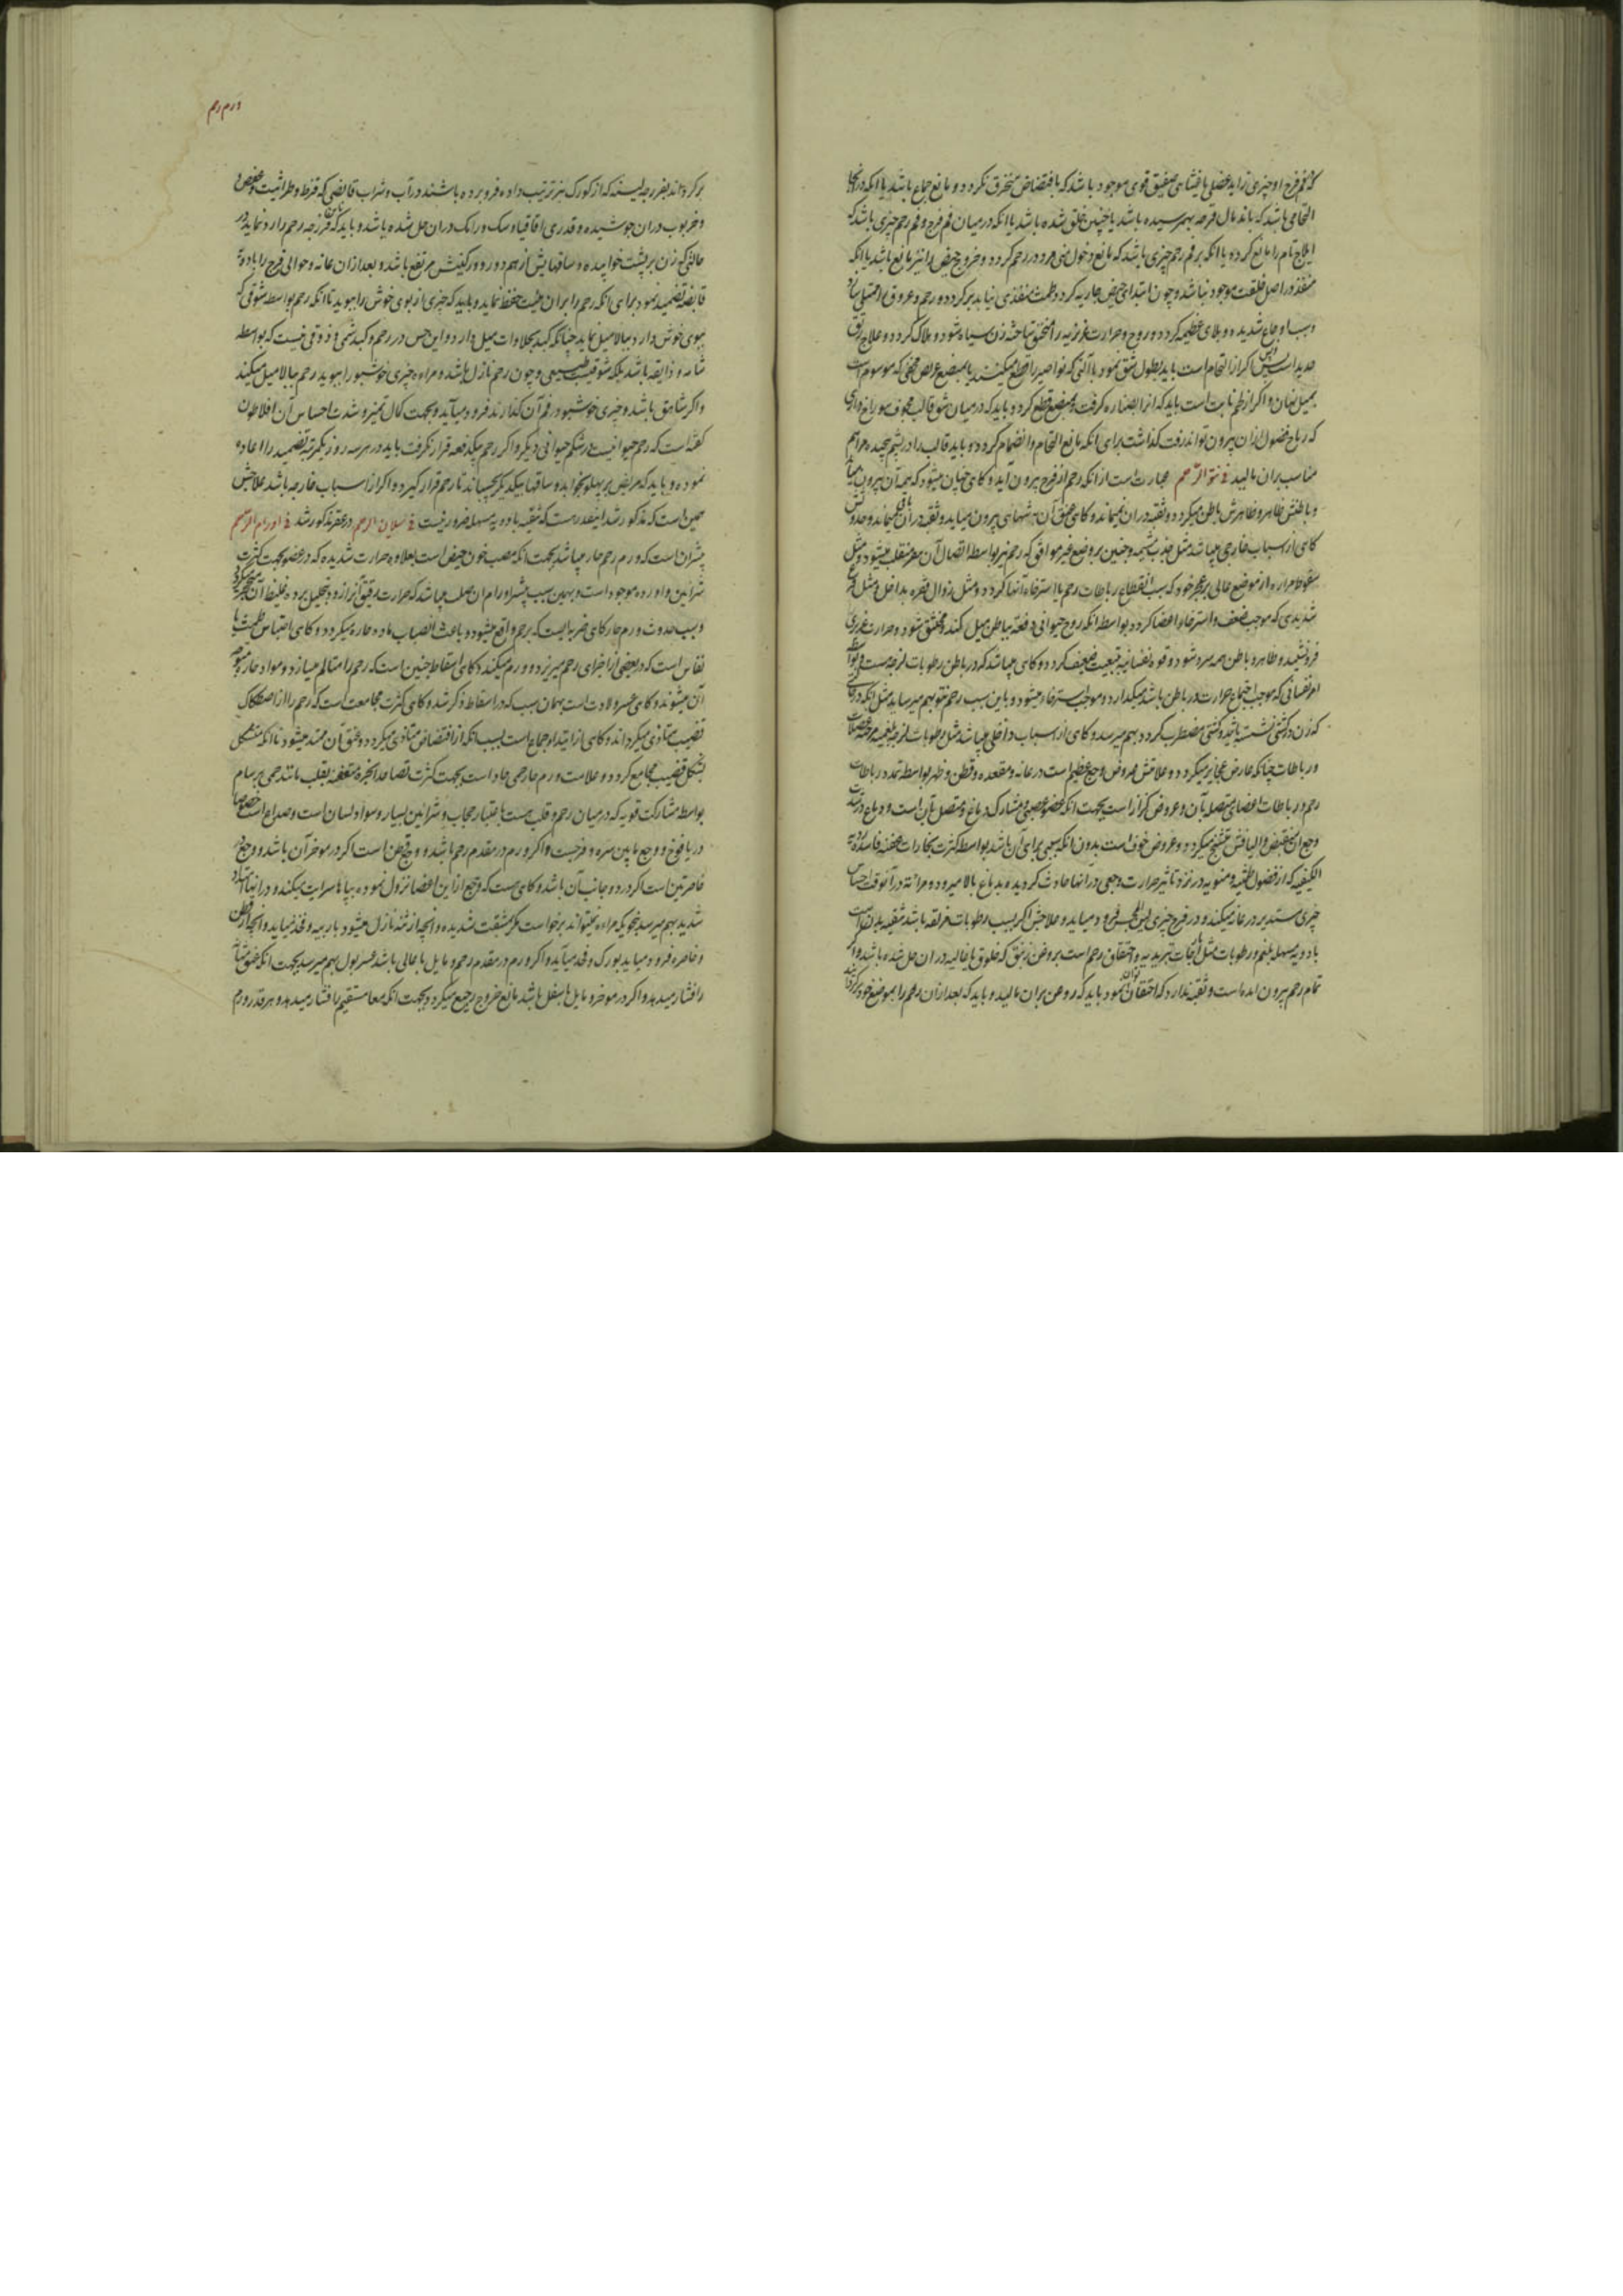 که فم فرج او چیزی زاید عضلی یا غشای صفیق قوی موجود باشد که باقتضاض منخرق نکردد و مانع جماع باشد یا انکه در انجا
التحامی باشد که باندمال قرحه بهمرسیده باشد یا چنین خلق شده باشد یا انکه در میان فم فرج و فم رحم چیزی باشد که
ایلاج تام را مانع کردد یا انکه بر فم رحم چیزی باشد که مانع دخول منی مرد در رحم کردد و خروج حیض را نیز مانع باشد یا انکه
منفذ در اصل خلقت موجود نباشد و چون ابتدای حیض جاریه کردد و طمث منفذی نیابد بر کردد و رحم و عروق
و سبب اوجاع شدیده و بلای عظیمه کردد و روح و حرارت غریزیه را مختنق ساخته زن سیاه شود و هلاک کردد و علاج رتق
حدید است پس اکر از التحام است باید بطول شق نمود با آلتی که نواصیر را قطع میکنند یا بمبضع عریض مخفی که موسوم است
بمیل نهان و اکر از لحم نابت است باید که انرا بصناره کرفت و بمبضع قطع کرد و باید که در میان شق قالب مجوف سوراخ داری
که ریاح و فضول از ان بیرون تواند رفت کذاشت برای انکه مانع التحام و انضمام کردد و باید قالب را در پشم پیچیده مراهم
مناسب بران مالید فی نتو الرحم عبارت است از انکه رحم از فرج بیرون آید و کاهی چنان میشود که همه آن بیرون میآید
و باطنش ظاهر و ظاهرش باطن میکردد و ثقبه دران نمیماند و کاهی عنق آن بتنهای بیرون میاید و ثقبه در آن میماند و حدوثش
کاهی از اسباب خارجی میباشد مثل جذب مشیمه و جنین بر وضع غیر موافق که رحم نیز بواسطه اتصال آن منقلب میشود و مثل
سقوط مراءه از موضع عالی بر عجز خود که سبب انقطاع رباطات رحم یا استرخاء انها کردد و مثل زوال فقره بداخل و مثل فزع
شدیدی که موجب ضعف و استرخاء اعضا کردد بواسطه انکه روح حیوانی دفعه بباطن میل کند و مختنق شود و حرارت غریزی
فرو نشیند و ظاهر و باطن همه سرد شود و قوه نفسانیه به تبعیت ضعیف کردد و کاهی میباشد که در باطن رطوبات لزجه هست
اعراض نفسانی که موجب اجتماع حرارت در باطن باشد میکدازد و موجب استرخاء میشود و باین سبب رحم نتو بهم میرساند مثل انکه در
که زن در کشتی نشسته باشد و کشتی مضطرب کردد بهم میرسد و کاهی از اسباب داخلی میباشد مثل رطوبات لزجه بلغمیه مرخیه عضلات
و رباطات چنانکه عارض عجایز میکردد و علامتش عروض وجع عظیم است در عانه و مقعده و قطن و ظهر بواسطه تمدد رباطات
رحم و رباطات اعضای متصله بآن و عروض کزاز است بجهت انکه عضو عصبی و مشارک دماغ و متصل بآن است و دماغ در شدت
وجع ان منقبض و الیافش متشنج میکردد و عروض خوف است بدون انکه سببی برای آن باشد بواسطه کثرت بخارات عفنه فاسده ردیه
الکیفیه که از فضول طمثیه و منویه در نزد تاثیر حرارت وجعی در انها حادث کردیده بدماغ بالا میرود و مراءه در آنوقت احساس
چیزی مستدیر در عانه میکند و در فرج چیزی لین المجس فرود میاید و علاجش اکر بسبب رطوبات مزلقه باشد تنقیه بدن است
بادویه مسهله بلغم و رطوبات مثل ایارجات و تربدیه و احتقان رحم است بروغن زنبق که خلوق یا غالیه در ان حل شده باشد و اکر
تمام رحم بیرون امده است و ثقبه ندارد که احتقان تواند نمود باید که روغن بران مالید و باید که بعد از ان رحم را بموضع خود
ورم رحم
بر کرداند بفرزجه لینه که از کورک بز ترتیب داده فرو برده باشند در آب و شراب قابضی که قرظ و طراثیث و عفص
و خرنوب دران جوشیده و قدری اقاقیا و سک و رامک دران حل شده باشد و باید که باین فرزجه رحم را رد نماید در
حالتی که زن بر پشت خوابیده و ساقهایش از هم دور و ورکینش مرتفع باشد و بعد از ان عانه و حوالی فرج را بادویه
قابضه تضمید نمود برای انکه رحم را بران هیئت حفظ نماید و باید که چیزی از بوی خوش را ببوید تا انکه رحم بواسطه شوقی که
ببوی خوش دارد ببالا میل نماید چنانکه کبد بحلاوات میل دارد و این حس در رحم و کبد شمی و ذوقی نیست که بواسطه
شامه و ذایقه باشد بلکه شوقیست طبیعی و چون رحم نازل باشد و مراءه چیزی خوشبو را ببوید رحم ببالا میل میکند
و اکر شاهق باشد و چیزی خوشبو در فم آن کذارند فرود میآید و بجهت کمال تمیز و شدت احساس آن افلاطون
کفته است که رحم حیوانیست در شکم حیوانی دیکر و اکر رحم بیکدفعه قرار نکرفت باید در هر سه روز یکمرتبه تضمید را اعاده
نموده و باید که مریض بر پهلو بخوابد و ساقها بیکدیکر بچسباند تا رحم قرار کیرد و اکر از اسباب خارجه باشد علاجش
همین است که مذکور شد اینقدر هست که تنقیه بادویه مسهله ضرور نیست فی سیلان الرحم در عقر مذکور شد فی اورام الرحم
بیشتر آن است که ورم رحم حار میباشد بجهت انکه مصب خون حیض است بعلاوه حرارت شدیده که در عضو بجهت کثرت
شرائین و اورده موجود است و بهمین سبب بیشتر اورام ان صلب میباشد که حرارت رقیق آنرا زود بتحلیل برده غلیظ آن متحجر میکردد
و سبب حدوث ورم حار کاهی ضربه ایست که برحم واقع میشود و باعث انصباب ماده حاره میکردد و کاهی احتباس طمث یا
نفاس است که در بعضی از اجزای رحم میریزد و ورم میکند و کاهی اسقاط جنین است که رحم را متالم میسازد و مواد حار متوجه
آن میشوند و کاهی عسر ولادت است بهمان سبب که در اسقاط ذکر شد و کاهی کثرت مجامعت است که رحم را از اصطکاک
قضیب متاذی میکرداند و کاهی از ابتداء جماع است بسبب انکه از اقتضاض متاذی میکردد و عنق آن ممتد میشود تا انکه متشکل
بشکل قضیب مجامع کردد و علامت ورم حار حمی حاد است بجهت کثرت تصاعد ابخره متعفنه بقلب مانند حمی برسام
بواسطه مشارکت قویه که در میان رحم و قلب هست باعتبار حجاب و شرائین بسیار و سواد لسان است و صداع است خصوصا
در یافوخ و وجع مابین سره و فرجست و اکر ورم در مقدم رحم باشد و وجع قطن است اکر در موخر آن باشد و وجع
خاصرتین است اکر در دو جانب آن باشد و کاهی هست که وجع از این اعضا نزول نموده بپاها سرایت میکند و در انها امتداد
شدید بهم میرسد بنحویکه مراءه نمیتواند برخواست مکر بمشقت شدیده و انچه از ثنه نازل میشود باربیه و فخذ میاید و انچه از قطن
و خاصره فرود میاید بورک و فخذ میآید و اکر ورم در مقدم رحم و مایل باعالی باشد عسر بول بهم میرسد بجهت انکه عنق مثانه
را فشار میدهد و اکر در موخر و مایل باسفل باشد مانع خروج رجیع میکردد بجهت انکه معا مستقیم را فشار میدهد و هر قدر ورم